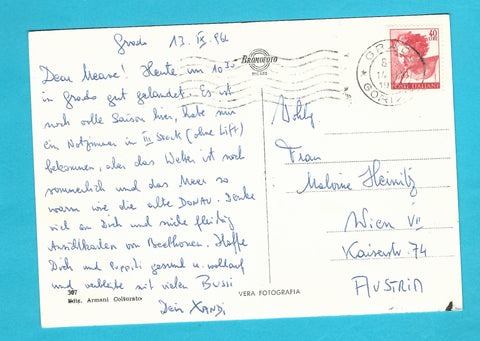 Grado 13. IX. 64
Dear Meave! Heute um 10 30
in Grado gut gelandet. Es ist
noch volle Saison hier, habe nur
ein Notzimmer im III Stock (ohne Lift)
bekommen, aber das Wetter ist noch
sommerlich und das Meer so
warm wie die alte DONAU. Denke
viel an Dich und sende fleißig
Ansichtkarten von Beethoven. Hoffe
Dich und gesund u. wohlauf
und verbleibe mit vielen Bussi
Dein XANDI
307
Ediz. Armani Coltorato
BROMOFOTO
MILANO
VERA FOTOGRAFIA
40
LIRE
POSTE ITALIANE
GRADO
GORIZIA
Frau
Malvine Heinitz
Wien VII
Kaiserstr. 74
AUSTRIA